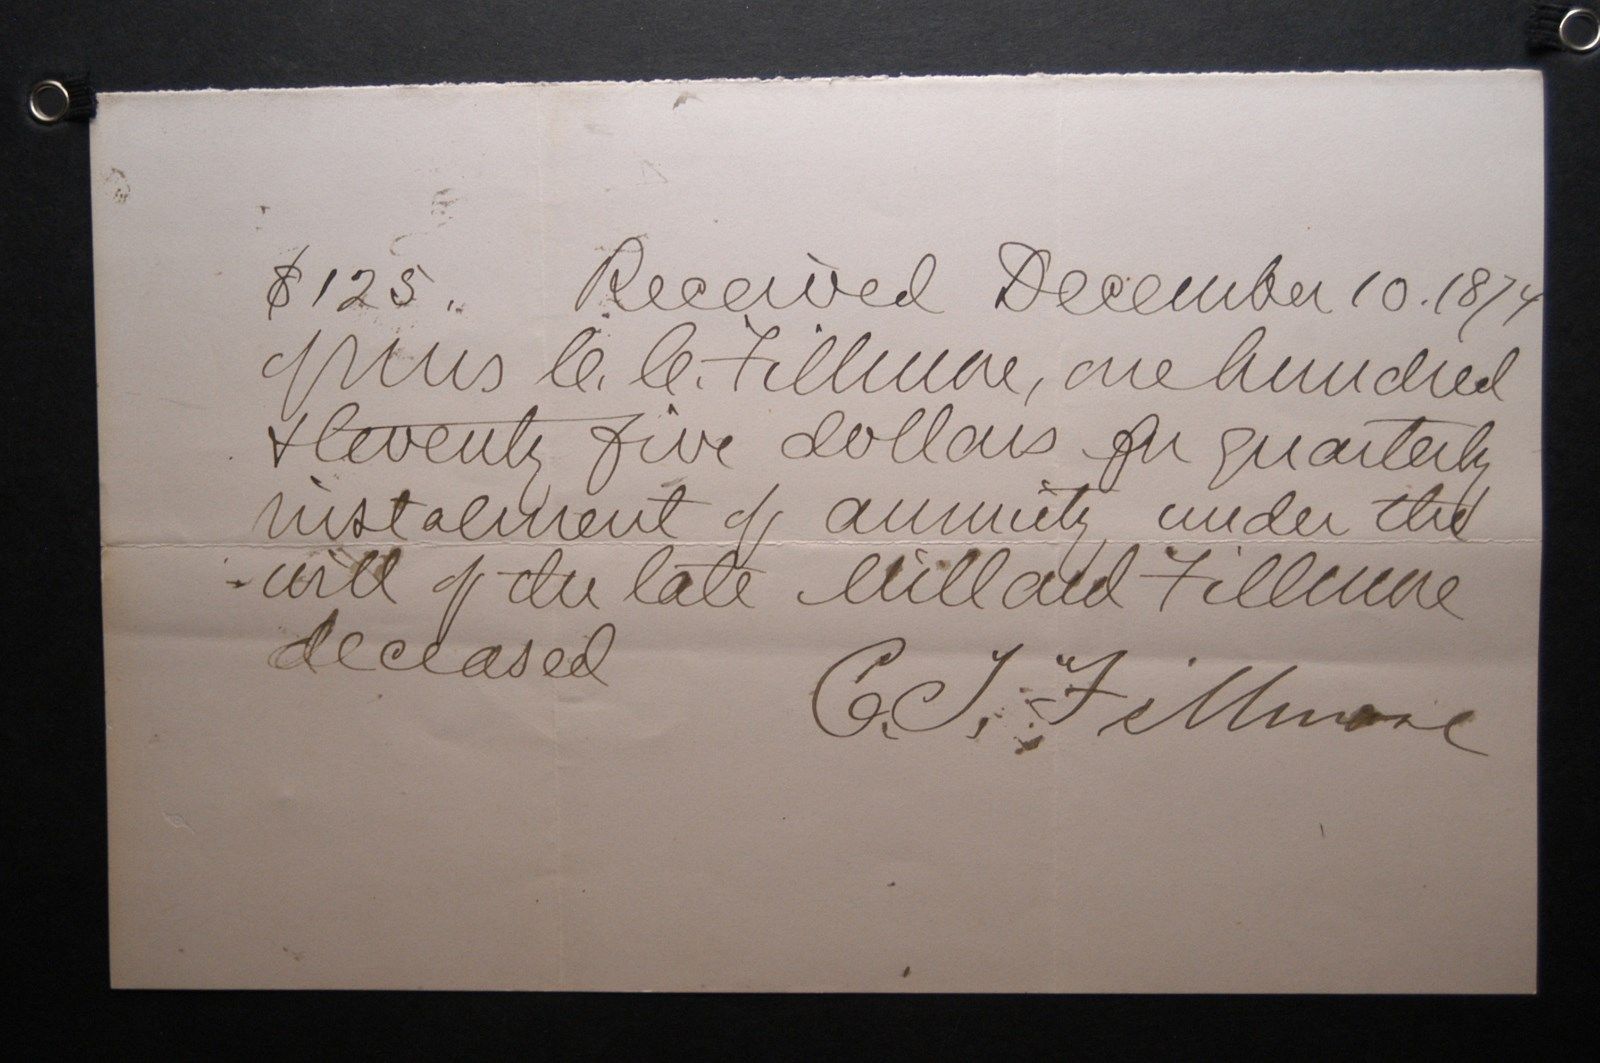 $125. Received December 10. 1874
of Mrs C. C. Fillmore, one hundred
& twenty five dollars for quarterly
instalment of annuity under the
will of the late Millard Fillmore
deceased
C. T. Fillmore